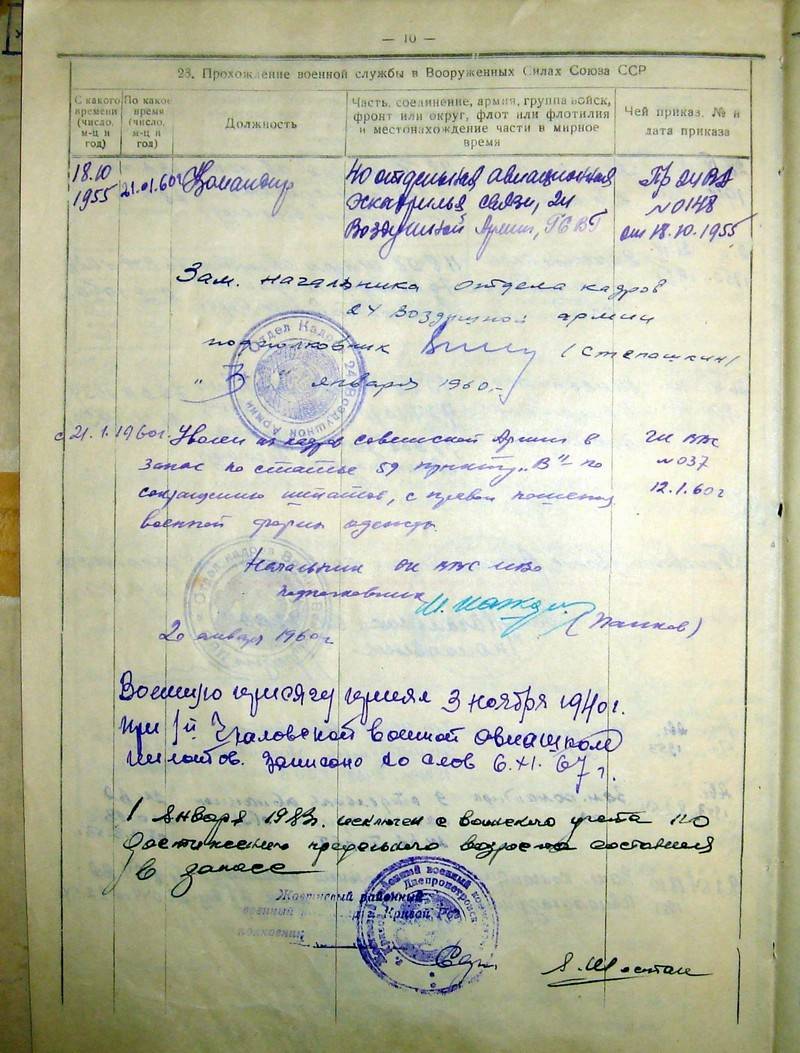 — 10 —
23. Прохождение военной службы в Вооруженных Силах Союза ССР
С какого времени (число, м-ц и год)
По какое время (число, м-ц и год)
Должность
Часть, соединение, армия, группа войск, фронт или округ, флот или флотилия и местонахождение части в мирное время
Чей приказ, № и дата приказа
18.10 1955
21.01.60г
Командир
40 отдельная авиационная
эскадрилья связи, 24
Воздушной Армии, ГСВГ
Пр 24 ВА
№0148
от 18.10.1955
Зам. начальника отдела кадров
24 Воздушной армии
подполковник (Степашкин)
Отдел Кадров 24 Воздушной Армии
января 1960
с 21.1.1960г. Уволен из кадров Советской Армии в
запас по статье 59 пункту „В" – по
сокращению штатов, с правом ношения
военной формы одежды.
№037
12.1.60г
Начальник
подполковник
20 января 1960г
Военную присягу принял 3 ноября 1940г.
при 1й Чкаловской военной авиашколе
пилотов. Записано со слов 6.XI.67г.
1 января 1983г. исключен с воинского учета по
достижению предельного возраста состояния
в запасе
Жовтневый районный
военный
Кривой Рог
полковник